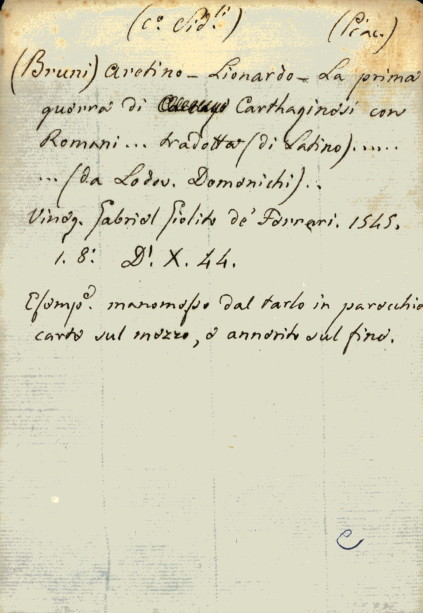 (Bruni) Aretino - Lionardo - La prima
guerra di Carthaginesi con
Romani... tradotta (di Latino).....
... (da Lodov. Domenichi)..
Vineg. Gabriel Giolito de' Ferrari. 1545.
1. 8.° D.¹ X. 44.
Esemp.e manomesso dal tarlo in parecchie
carte sul mezzo, e annerito sul fine.
C